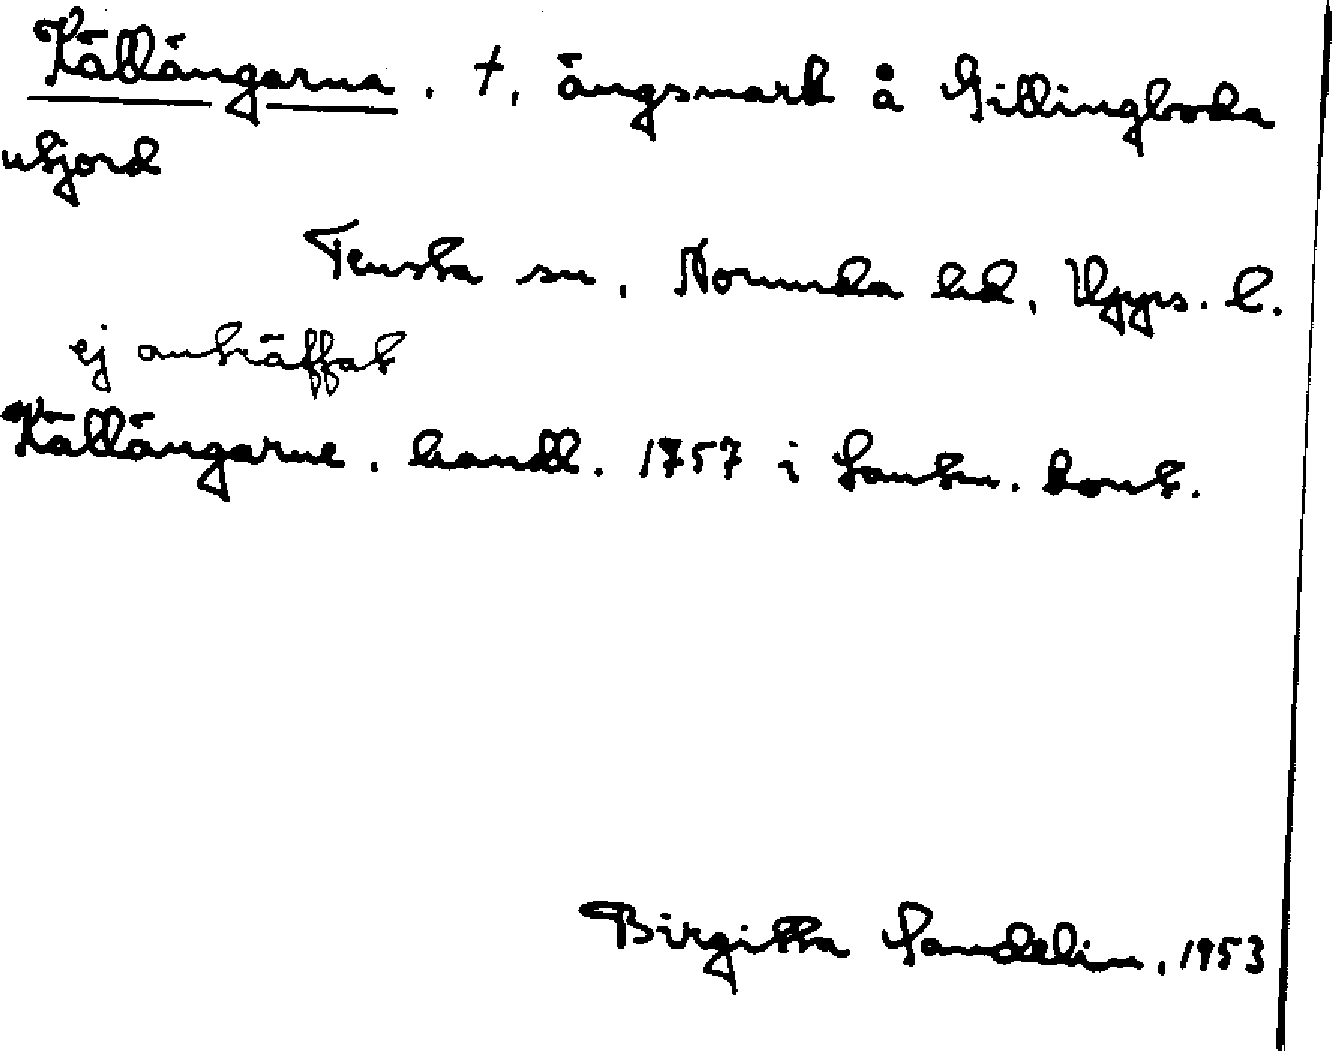 Källängarna. †, ängsmark å Gillingboda
utjord
Tensta sn, Norunda hd, Upps. l.
ej anträffat
Källängarne. handl. 1757 i Lantm. kont.
Birgitta Sandelin, 1953